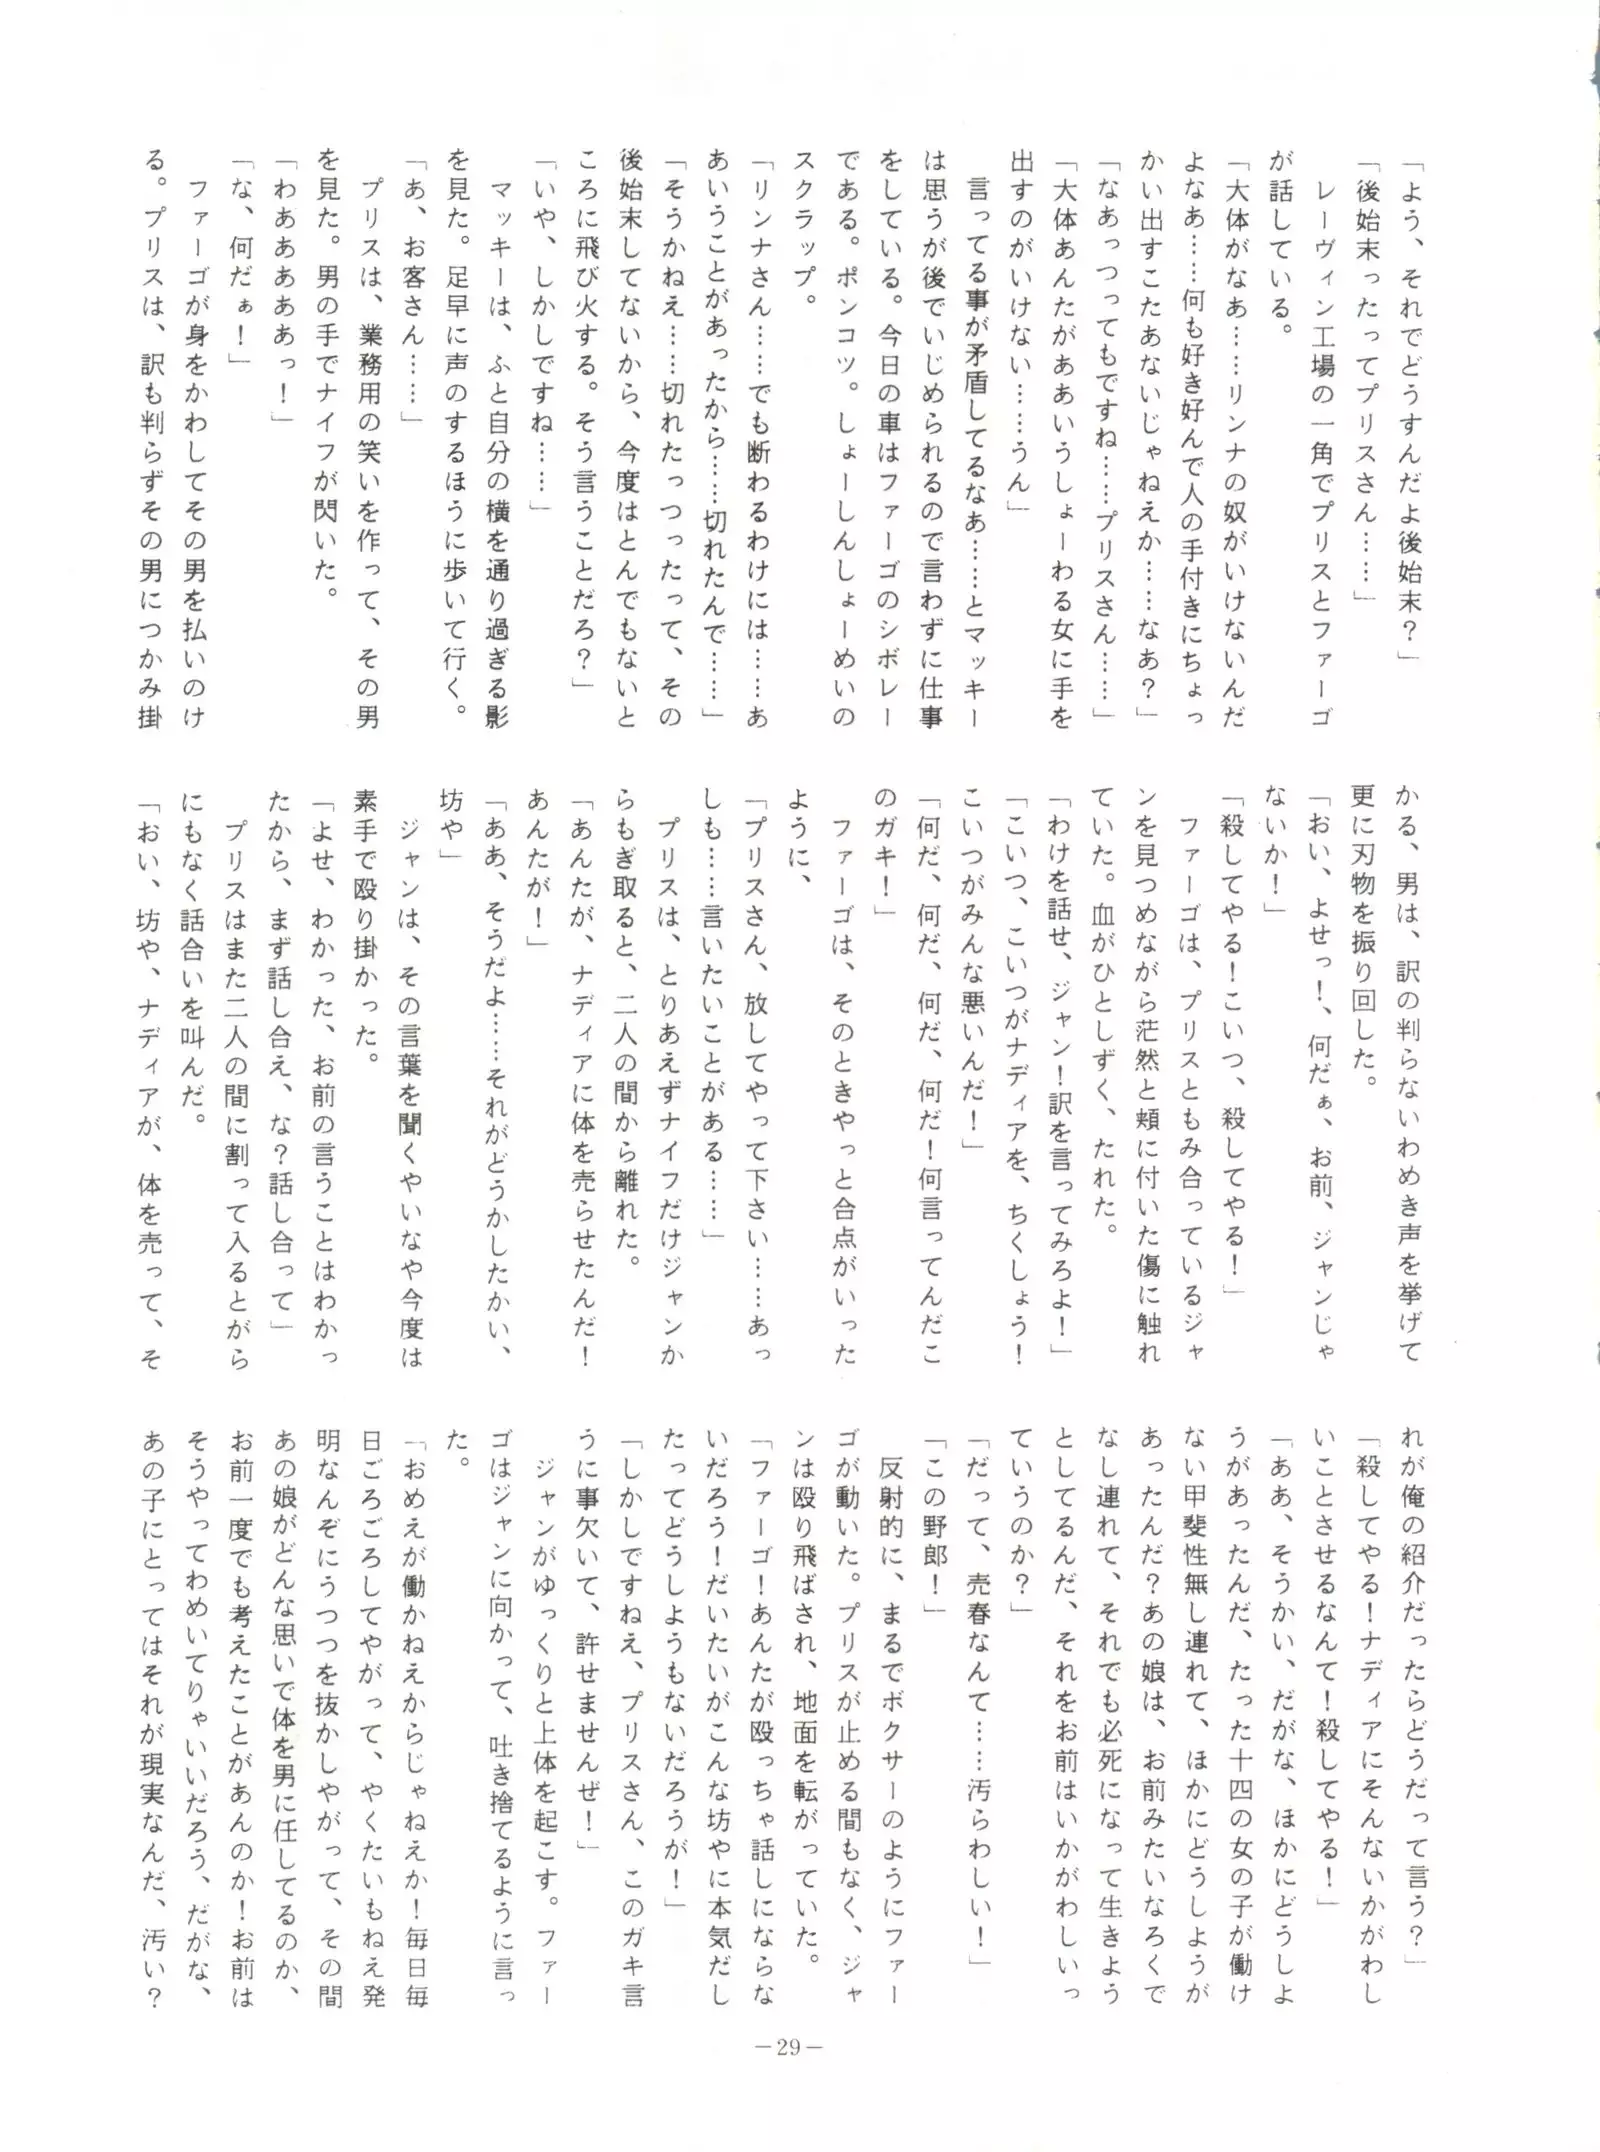 「よう、それでどうすんだよ後始末？」
「後始末ったってプリスさん……」
　レーヴィン工場の一角でプリスとファーゴ
が話している。
「大体がなあ……リンナの奴がいけないんだ
よなあ……何も好き好んで人の手付きにちょっ
かい出すこたあないじゃねえか……なあ？」
「なあっつってもですね……プリスさん……」
「大体あんたがああいうしょーわる女に手を
出すのがいけない……うん」
　言ってる事が矛盾してるなあ……とマッキー
は思うが後でいじめられるので言わずに仕事
をしている。今日の車はファーゴのシボレー
である。ポンコツ。しょーしんしょーめいの
スクラップ。
「リンナさん……でも断わるわけには……あ
あいうことがあったから……切れたんで……」
「そうかねえ……切れたっつったって、その
後始末してないから、今度はとんでもないと
ころに飛び火する。そう言うことだろ？」
「いや、しかしですね……」
　マッキーは、ふと自分の横を通り過ぎる影
を見た。足早に声のするほうに歩いて行く。
「あ、お客さん……」
　プリスは、業務用の笑いを作って、その男
を見た。男の手でナイフが閃いた。
「わあああああっ！」
「な、何だぁ！」
　ファーゴが身をかわしてその男を払いのけ
る。プリスは、訳も判らずその男につかみ掛
かる、男は、訳の判らないわめき声を挙げて
更に刃物を振り回した。
「おい、よせっ！、何だぁ、お前、ジャンじゃ
ないか！」
「殺してやる！こいつ、殺してやる！」
　ファーゴは、プリスともみ合っているジャ
ンを見つめながら茫然と頬に付いた傷に触れ
ていた。血がひとしずく、たれた。
「わけを話せ、ジャン！訳を言ってみろよ！」
「こいつ、こいつがナディアを、ちくしょう！
こいつがみんな悪いんだ！」
「何だ、何だ、何だ、何だ！何言ってんだこ
のガキ！」
　ファーゴは、そのときやっと合点がいった
ように、
「プリスさん、放してやって下さい……あっ
しも……言いたいことがある……」
　プリスは、とりあえずナイフだけジャンか
らもぎ取ると、二人の間から離れた。
「あんたが、ナディアに体を売らせたんだ！
あんたが！」
「ああ、そうだよ……それがどうかしたかい、
坊や」
　ジャンは、その言葉を聞くやいなや今度は
素手で殴り掛かった。
「よせ、わかった、お前の言うことはわかっ
たから、まず話し合え、な？話し合って」
　プリスはまた二人の間に割って入るとがら
にもなく話合いを叫んだ。
「おい、坊や、ナディアが、体を売って、そ
れが俺の紹介だったらどうだって言う？」
「殺してやる！ナディアにそんないかがわし
いことさせるなんて！殺してやる！」
「ああ、そうかい、だがな、ほかにどうしよ
うがあったんだ、たった十四の女の子が働け
ない甲斐性無し連れて、ほかにどうしようが
あったんだ？あの娘は、お前みたいなろくで
なし連れて、それでも必死になって生きよう
としてるんだ、それをお前はいかがわしいっ
ていうのか？」
「だって、売春なんて……汚らわしい！」
「この野郎！」
　反射的に、まるでボクサーのようにファー
ゴが動いた。プリスが止める間もなく、ジャ
ンは殴り飛ばされ、地面を転がっていた。
「ファーゴ！あんたが殴っちゃ話しにならな
いだろう！だいたいがこんな坊やに本気だし
たってどうしようもないだろうが！」
「しかしですねえ、プリスさん、このガキ言
うに事欠いて、許せませんぜ！」
　ジャンがゆっくりと上体を起こす。ファー
ゴはジャンに向かって、吐き捨てるように言っ
た。
「おめえが働かねえからじゃねえか！毎日毎
日ごろごろしてやがって、やくたいもねえ発
明なんぞにうつつを抜かしやがって、その間
あの娘がどんな思いで体を男に任してるのか、
お前一度でも考えたことがあんのか！お前は
そうやってわめいてりゃいいだろう、だがな、
あの子にとってはそれが現実なんだ、汚い？
－29－